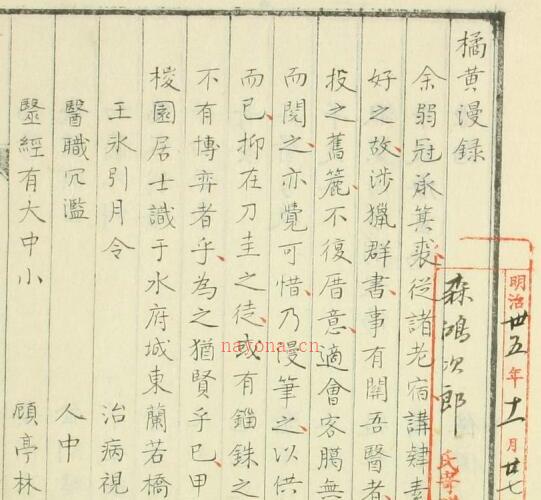 橘黃漫録
余弱冠承箕裘從諸老宿講肄素
好之故涉獵群書事有關吾醫者
投之舊簏不復厝意適會客臈無
而閱之亦覺可惜乃漫筆之以供
而已抑在刀圭之徒或有錙銖之
不有博弈者乎為之猶賢乎已甲
椶園居士識于水府城東蘭若橋
王氷引月令 治病視
醫職冗濫 人中
毉經有大中小 顧亭林
明治卅五年十一月廿七
森鴻次郎
氏寄
nayona.cn